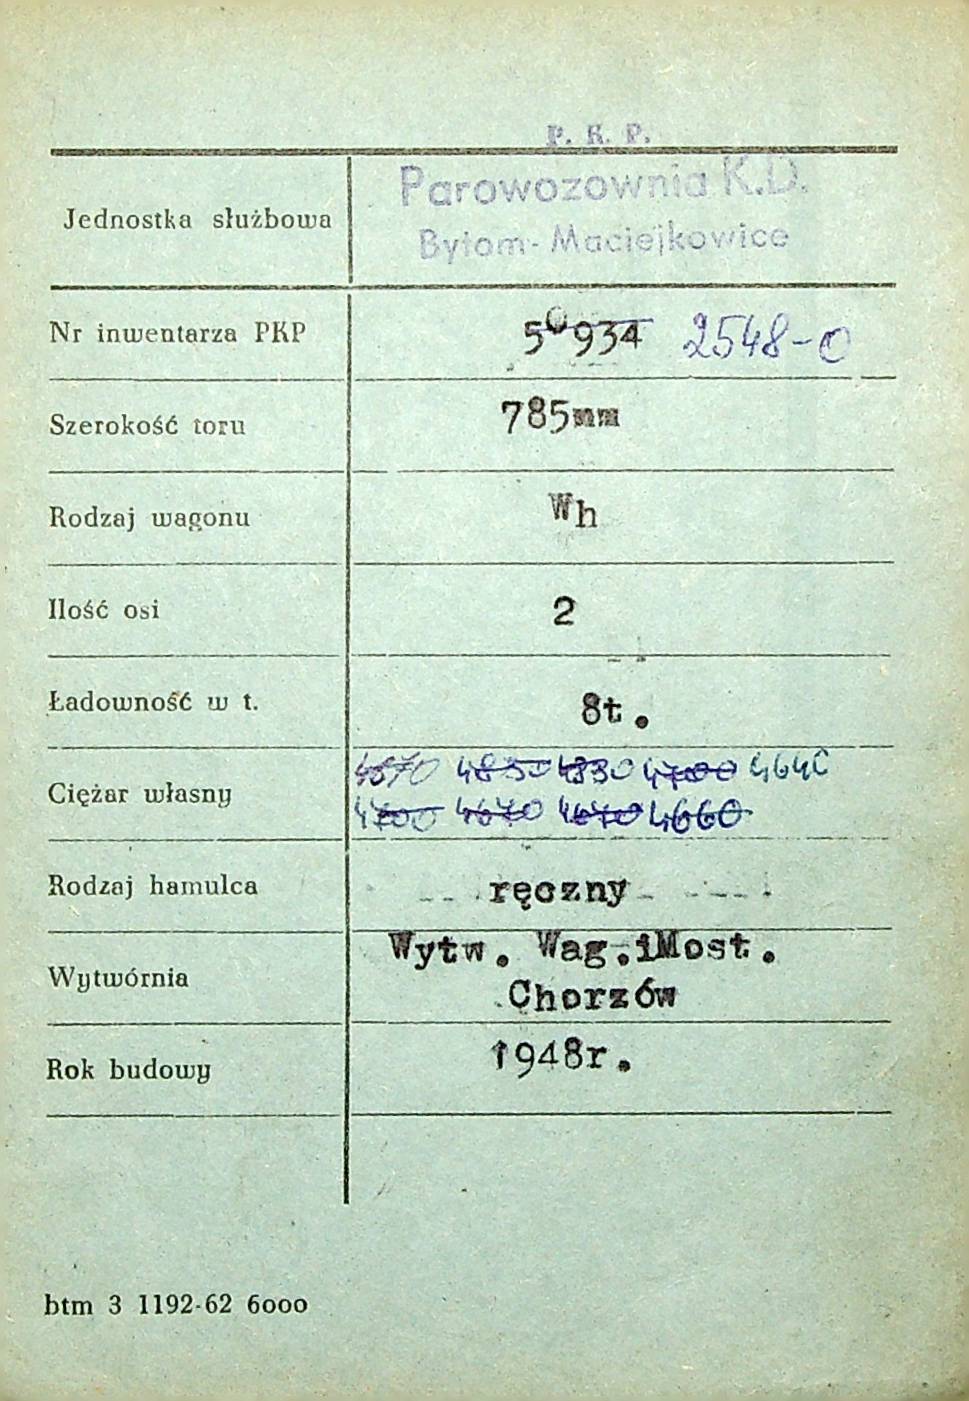 P. K. P.
Parowozownia K.D.
Bytom-Maciejkowice
Jednostka służbowa
Nr inwentarza PKP 50934 2548-0
Szerokość toru 785mm
Rodzaj wagonu Wh
Ilość osi 2
Ładowność w t. 8t.
4570 4850 4830 4700 4640
Ciężar własny
4700 4670 4640 4660
Rodzaj hamulca ręczny
Wytw. Wag.iMost.
Wytwórnia
Chorzów
Rok budowy 1948r.
btm 3 1192-62 6000